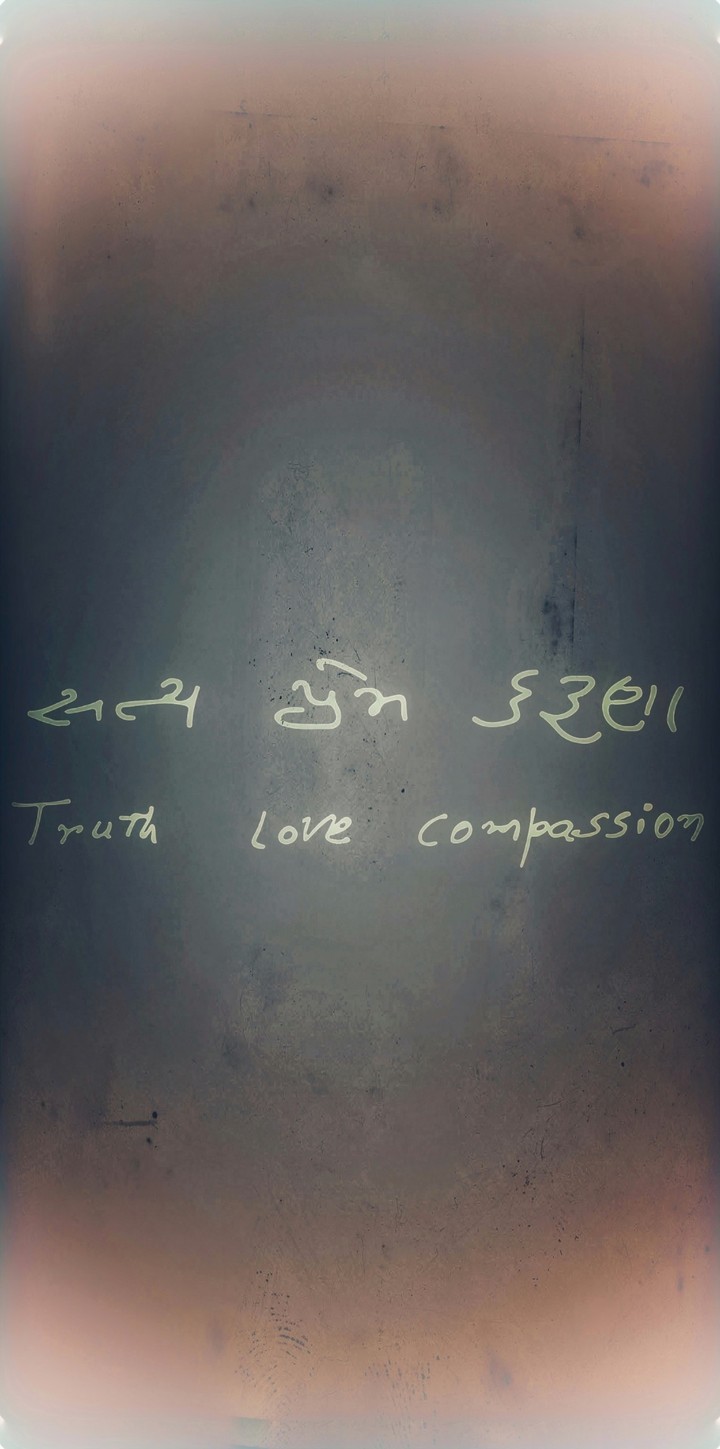 સત્ય પ્રેમ કરુણા
Truth love compassion